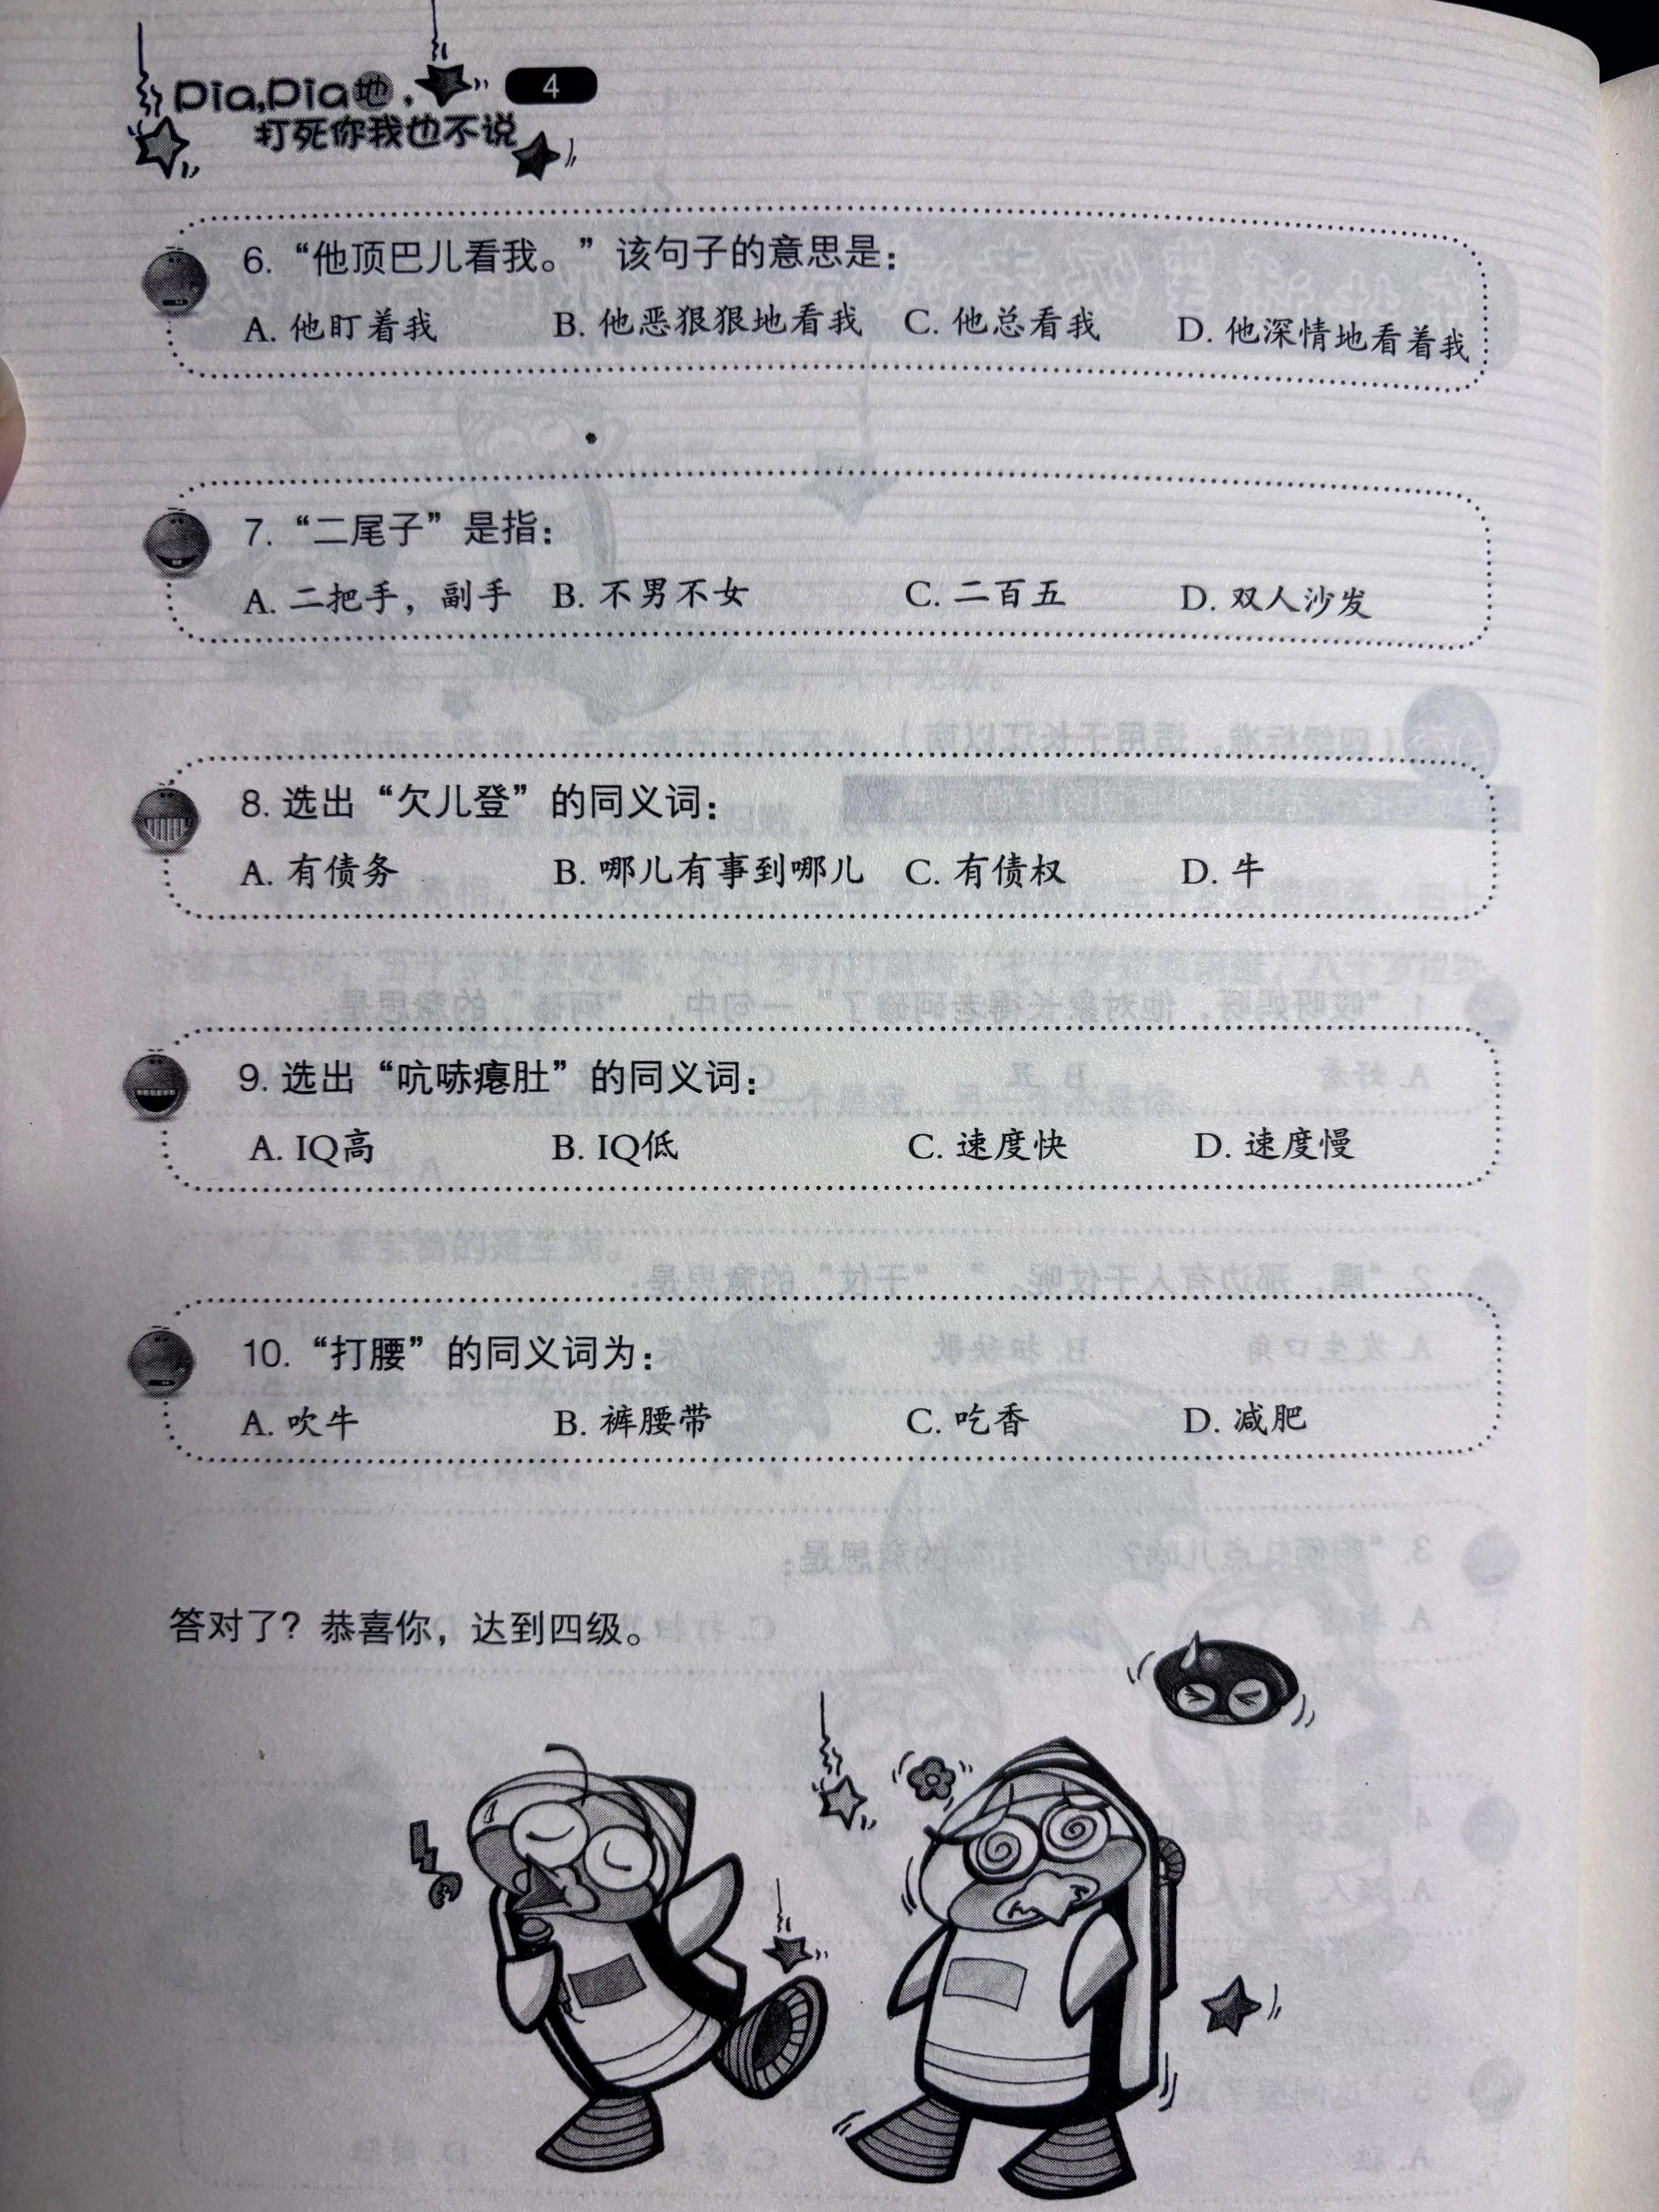 Pia,Pia地，
4
打死你我也不说
6. “他顶巴儿看我。”该句子的意思是：
A. 他盯着我 B. 他恶狠狠地看我 C. 他总看我 D. 他深情地看着我
7. “二尾子”是指：
A. 二把手，副手 B. 不男不女 C. 二百五 D. 双人沙发
8. 选出“欠儿登”的同义词：
A. 有债务 B. 哪儿有事到哪儿 C. 有债权 D. 牛
9. 选出“吭哧瘪肚”的同义词：
A. IQ高 B. IQ低 C. 速度快 D. 速度慢
10. “打腰”的同义词为：
A. 吹牛 B. 裤腰带 C. 吃香 D. 减肥
答对了？恭喜你，达到四级。